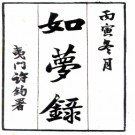 丙寅冬月
如夢錄
夷門許鈞署